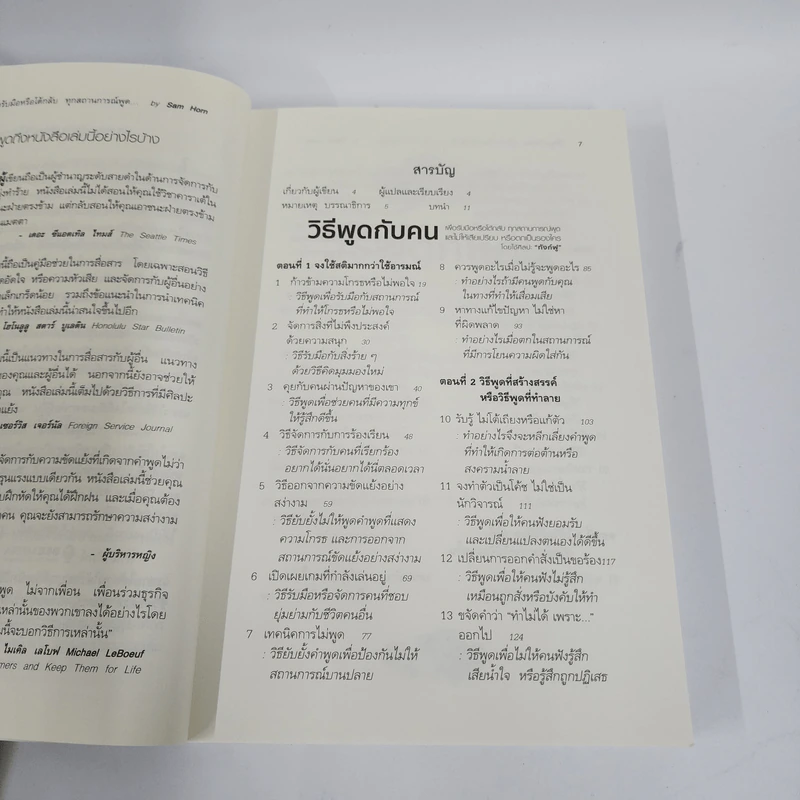 รับมือหรือโต้กลับ ทุกสถานการณ์พูด... by Sam Horn
พูดถึงหนังสือเล่มนี้อย่างไรบ้าง
ผู้เขียนถือเป็นผู้ชำนาญระดับสายดำในด้านการจัดการกับ
หนังสือเล่มนี้ไม่ได้สอนให้คุณใช้วิชาคาราเต้ใน
แต่กลับสอนให้คุณเอาชนะฝ่ายตรงข้าม
- เดอะ ซีแอตเทิล ไทมส์ The Seattle Times
นี้ถือเป็นคู่มือช่วยในการสื่อสาร โดยเฉพาะสอนวิธี
หรือความหัวเสีย และจัดการกับผู้อื่นอย่าง
เล็กเกร็ดน้อย รวมถึงข้อแนะนำในการนำเทคนิค
ทำให้หนังสือเล่มนี้น่าสนใจขึ้นไปอีก
โฮโนลูลู สตาร์ บูเลติน Honolulu Star Bulletin
นี้เป็นแนวทางในการสื่อสารกับผู้อื่น แนวทาง
ของคุณและผู้อื่นได้ นอกจากนี้ยังอาจช่วยให้
คุณ หนังสือเล่มนี้เต็มไปด้วยวิธีการที่มีศิลปะ
เซอร์วิส เจอร์นัล Foreign Service Journal
จัดการกับความขัดแย้งที่เกิดจากคำพูดไม่ว่า
รุนแรงแบบเดียวกัน หนังสือเล่มนี้ช่วยคุณ
ฝึกหัดให้คุณได้ฝึกฝน และเมื่อคุณต้อง
คน คุณจะยังสามารถรักษาความสง่างาม
- ผู้บริหารหญิง
พูด ไม่จากเพื่อน เพื่อนร่วมธุรกิจ
เหล่านั้นของพวกเขาลงได้อย่างไรโดย
มนี้จะบอกวิธีการเหล่านั้น”
ไมเคิล เลโบฟ Michael LeBoeuf
mers and Keep Them for Life
7
สารบัญ
เกี่ยวกับผู้เขียน 4 ผู้แปลและเรียบเรียง 4
หมายเหตุ บรรณาธิการ 5 บทนำ 11
วิธีพูดกับคน
เพื่อรับมือหรือโต้กลับ ทุกสถานการณ์พูด
และไม่ให้เสียเปรียบ หรือตกเป็นรองใคร
โดยใช้ศิลปะ "กังก์ฟู"
ตอนที่ 1 จงใช้สติมากกว่าใช้อารมณ์
1 ก้าวข้ามความโกรธหรือไม่พอใจ 19
: วิธีพูดเพื่อรับมือกับสถานการณ์
ที่ทำให้โกรธหรือไม่พอใจ
2 จัดการสิ่งที่ไม่พึงประสงค์
ด้วยความสนุก 30
: วิธีรับมือกับสิ่งร้าย ๆ
ด้วยวิธีคิดมุมมองใหม่
3 คุยกับคนผ่านปัญหาของเขา 40
: วิธีพูดเพื่อช่วยคนที่มีความทุกข์
ให้รู้สึกดีขึ้น
4 วิธีจัดการกับการร้องเรียน 48
: วิธีจัดการกับคนที่เรียกร้อง
อยากได้นั่นอยากได้นี่ตลอดเวลา
5 วิธีออกจากความขัดแย้งอย่าง
สง่างาม 59
: วิธียับยั้งไม่ให้พูดคำพูดที่แสดง
ความโกรธ และการออกจาก
สถานการณ์ขัดแย้งอย่างสง่างาม
6 เปิดเผยเกมที่กำลังเล่นอยู่ 69
: วิธีรับมือหรือจัดการคนที่ชอบ
ยุ่มย่ามกับชีวิตคนอื่น
7 เทคนิคการไม่พูด 77
: วิธียับยั้งคำพูดเพื่อป้องกันไม่ให้
สถานการณ์บานปลาย
8 ควรพูดอะไรเมื่อไม่รู้จะพูดอะไร 85
: ทำอย่างไรถ้ามีคนพูดกับคุณ
ในทางที่ทำให้เสื่อมเสีย
9 หาทางแก้ไขปัญหา ไม่ใช่หา
ที่ผิดพลาด 93
: ทำอย่างไรเมื่อตกในสถานการณ์
ที่มีการโยนความผิดใส่กัน
ตอนที่ 2 วิธีพูดที่สร้างสรรค์
หรือวิธีพูดที่ทำลาย
10 รับรู้ ไม่โต้เถียงหรือแก้ตัว 103
: ทำอย่างไรจึงจะหลีกเลี่ยงคำพูด
ที่ทำให้เกิดการต่อต้านหรือ
สงครามน้ำลาย
11 จงทำตัวเป็นโค้ช ไม่ใช่เป็น
นักวิจารณ์ 111
: วิธีพูดเพื่อให้คนฟังยอมรับ
และเปลี่ยนแปลงตนเองได้ดีขึ้น
12 เปลี่ยนการออกคำสั่งเป็นขอร้อง 117
: วิธีพูดเพื่อให้คนฟังไม่รู้สึก
เหมือนถูกสั่งหรือบังคับให้ทำ
13 ขจัดคำว่า "ทำไม่ได้ เพราะ..."
ออกไป 124
: วิธีพูดเพื่อไม่ให้คนฟังรู้สึก
เสียน้ำใจ หรือรู้สึกถูกปฏิเสธ